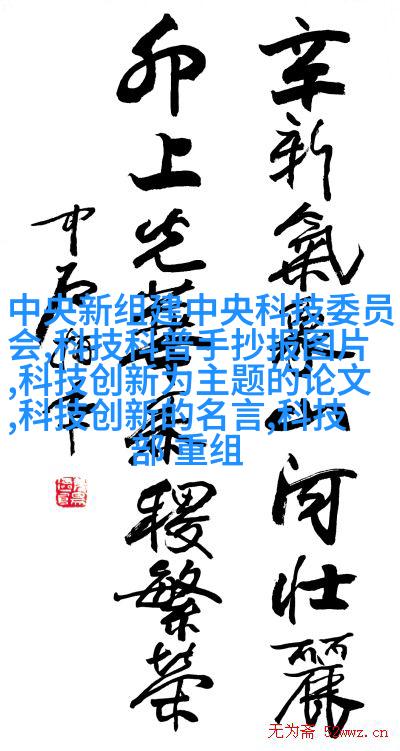 辛新氣象山河壮麗
卯上光華社稷繁荣
中央新组建中央科技委员
会,科技科普手抄报图片
,科技创新为主题的论文
,科技创新的名言,科技
部 重组
无为斋 52wwz.cn